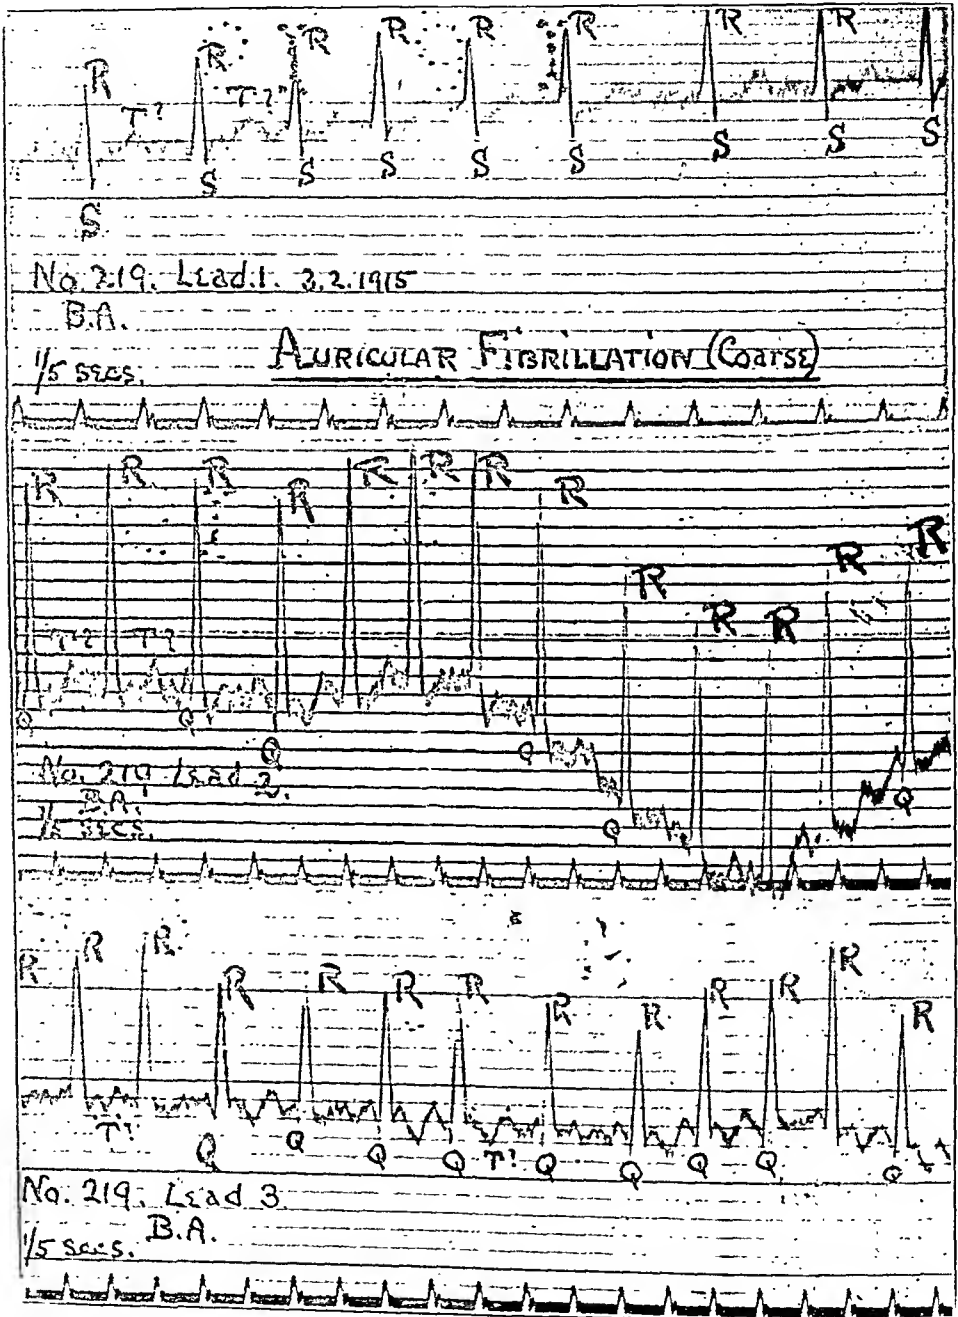 R R R R R R R R R
T? T?
S S S S S S S S S
No. 219. Lead.1. 3.2.1915
B.A.
AURICULAR FIBRILLATION (COARSE)
1/5 secs.
R R R R R R R R R R R R R
T? T?
Q Q Q Q Q Q
No. 219 Lead 2.
B.A.
1/5 secs.
R R R R R R R R R R R R R
T? T?
Q Q Q Q Q Q Q Q Q
No. 219. Lead 3.
B.A.
1/5 secs.